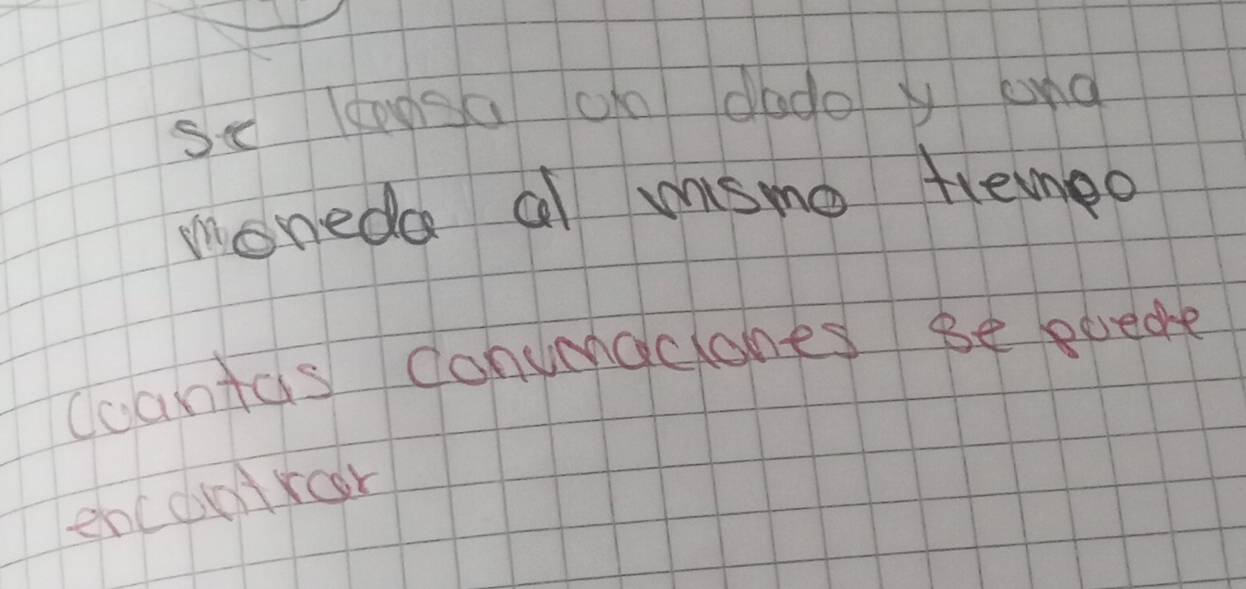 se lansa un dado y una
moneda al mismo tiempo
cuantas convinaciones se puede
encontrar